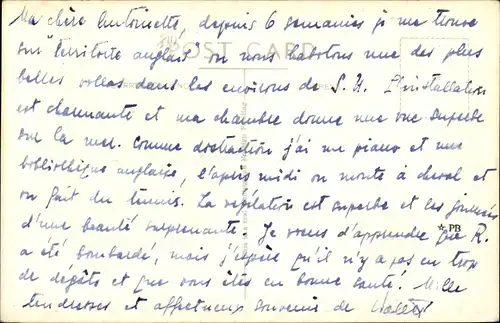 Ma chère Antoinette, depuis 6 semaines je me trouve
sur "territoire anglais" ou nous habitons une des plus
POST CARD
belles villas dans les environs de S. H. L'installation
est charmante et ma chambre donne une vue superbe
sur la mer. Comme distraction j'ai un piano et une
bibliothèque anglaise, l'après midi on monte à cheval et
on fait du tennis. La végétation est superbe et les journées
d'une beauté surprenante. Je viens d'apprendre que R.
PB
a été bombardé, mais j'espère qu'il n'y a pas eu trop
de dégâts et que vous êtes en bonne santé. Mille
tendresses et affectueux souvenir de